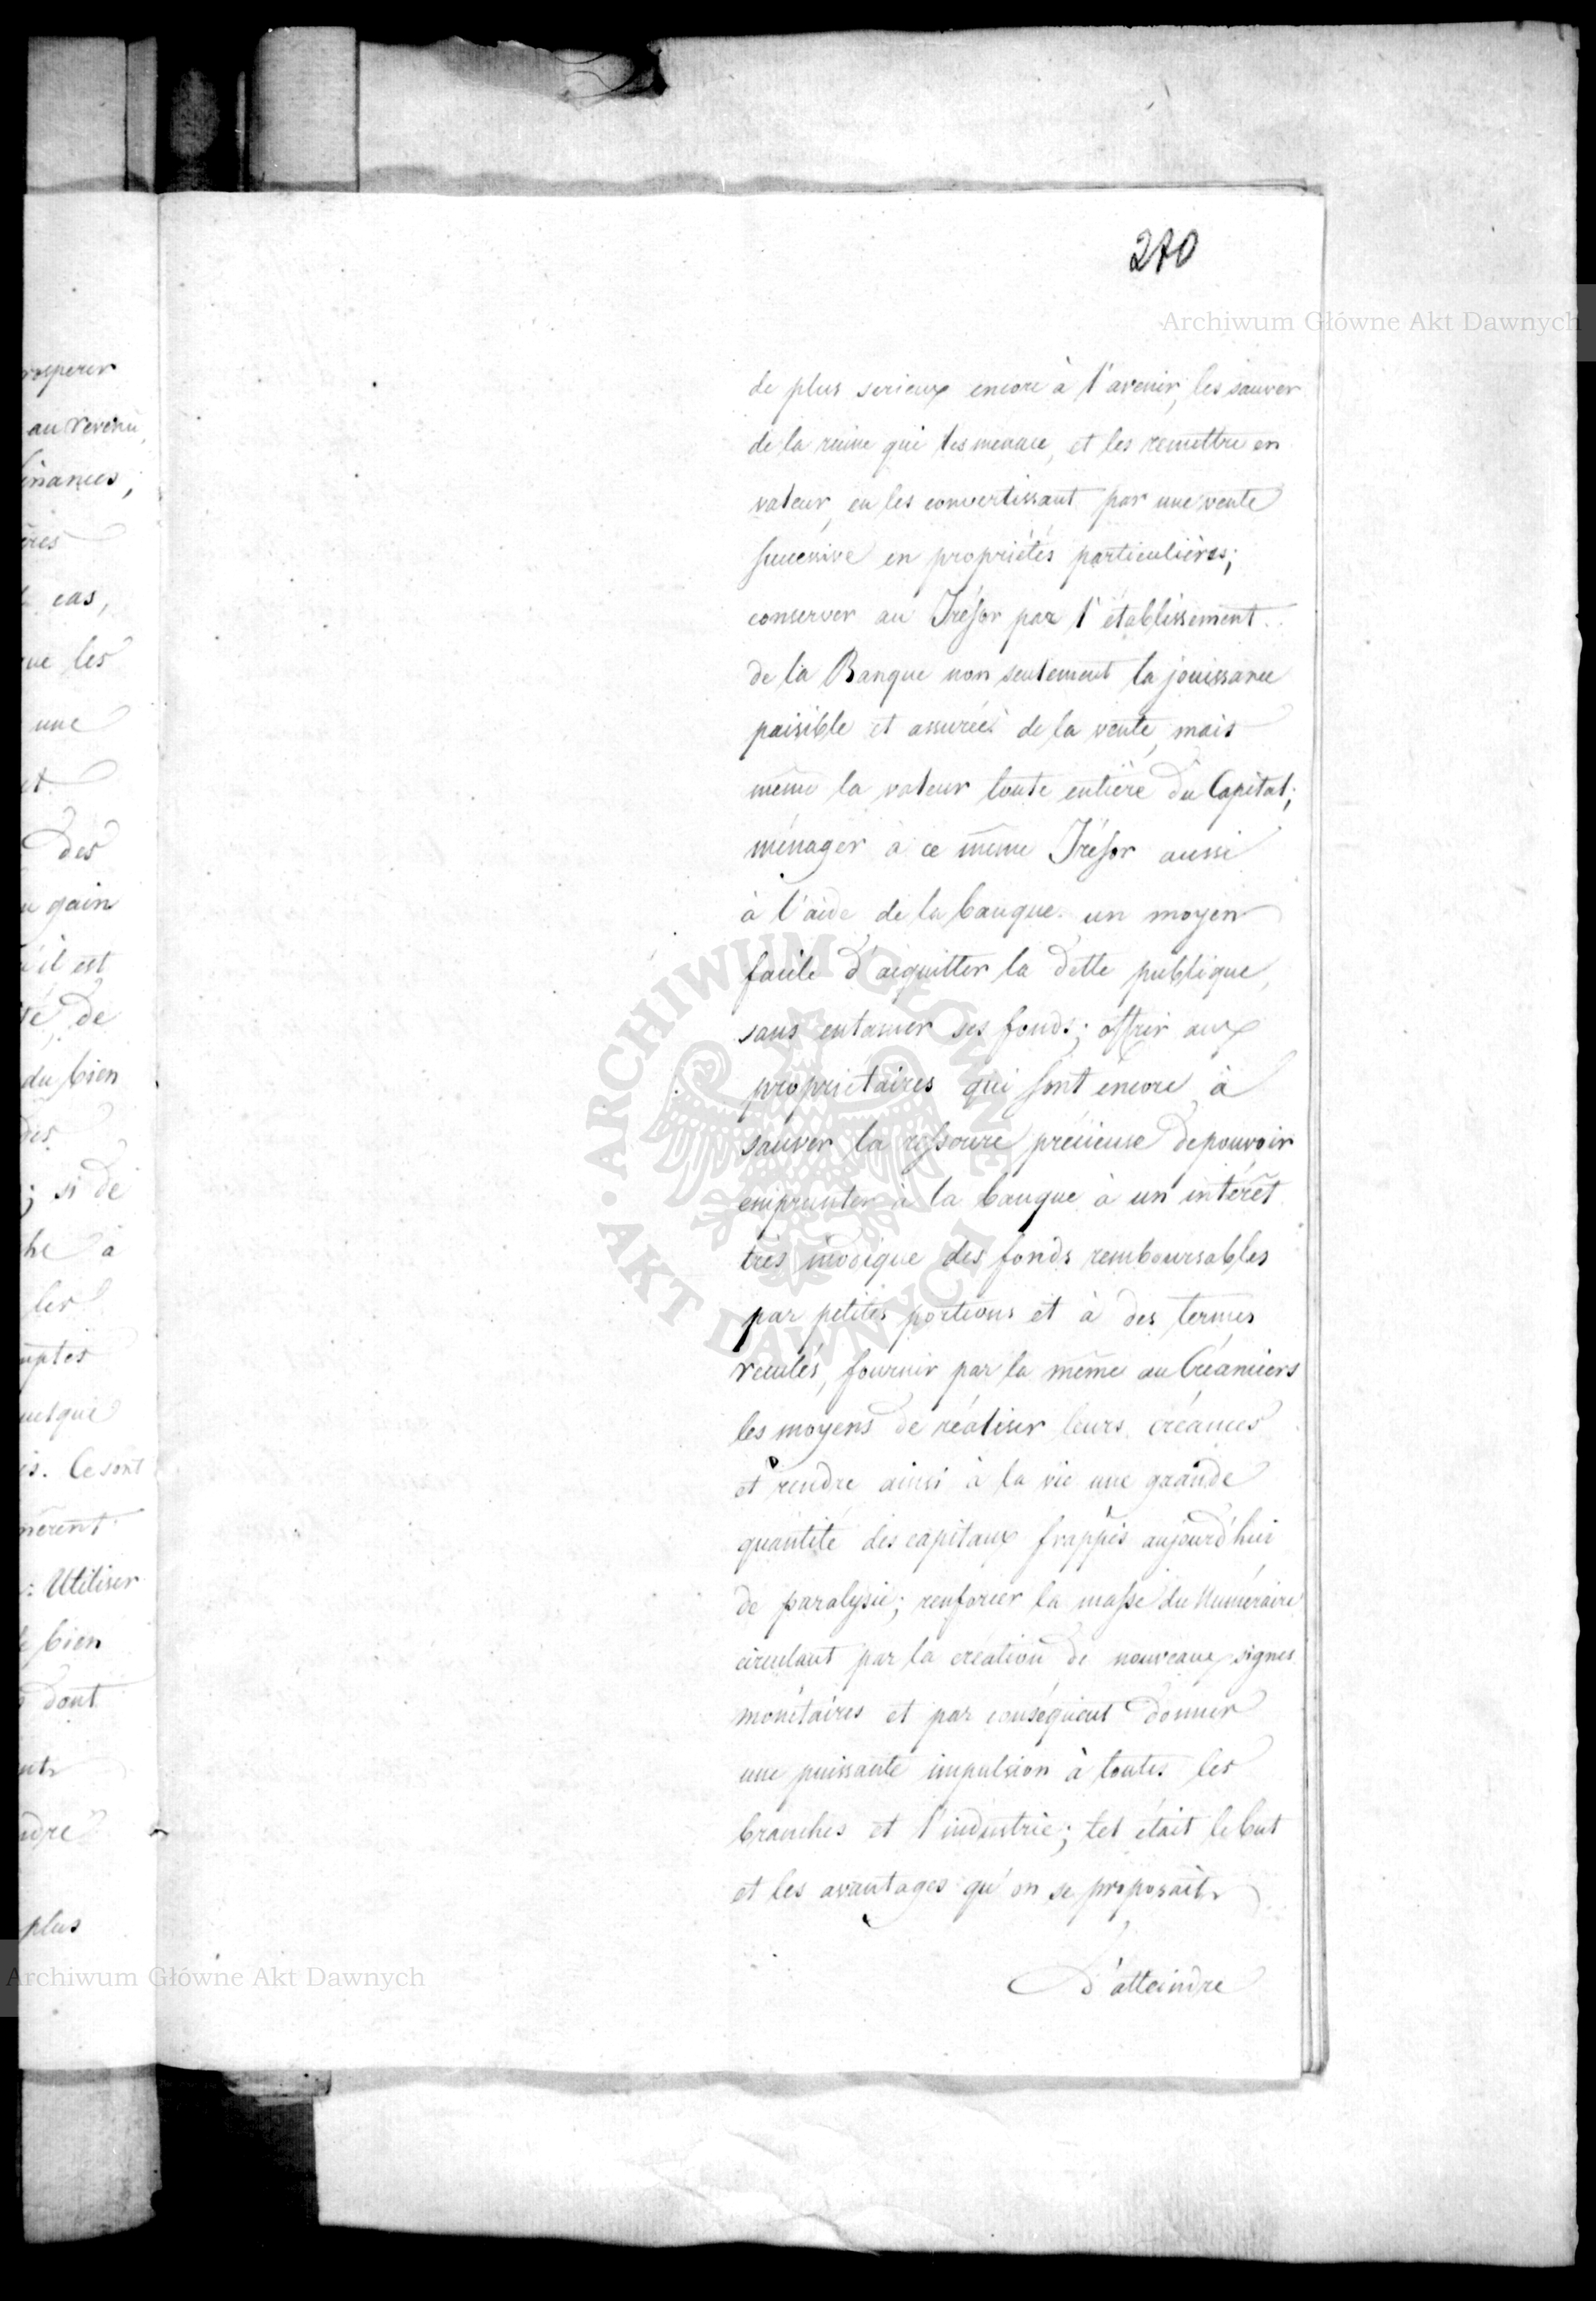 270
Archiwum Główne Akt Dawnych
de plus serieux encore à l'avenir, les sauver
de la ruine qui les menace, et les remettre en
valeur, en les convertissant par une vente
successive en propriétés particulières;
conserver au Trésor par l'établissement
de la Banque non seulement la jouissance
paisible et assurée de la vente, mais
même la valeur toute entière du Capital;
ménager à ce même Trésor aussi
à l'aide de la banque un moyen
facile d'acquitter la dette publique,
sans entamer ses fonds; offrir aux
propriétaires qui sont encore à
sauver la ressource précieuse de pouvoir
emprunter à la banque à un intérêt
très modique des fonds remboursables
par petites portions et à des termes
reculés, fournir par la même au Créanciers
les moyens de réaliser leurs créances
et rendre ainsi à la vie une grande
quantité des capitaux frappés aujourd'hui
de paralysie; renforcer la masse du Numéraire
circulant par la création de nouveaux signes
monétaires et par conséquent donner
une puissante impulsion à toutes les
branches et l'industrie; tel était le but
et les avantages qu'on se proposait
d'atteindre
ARCHIWUM GŁÓWNE AKT DAWNYCH
rosperer
au revenu,
finances,
ères
cas,
que les
une
et
des
u gain
qu'il est
sé de
du bien
des
; si de
he à
les
mptes
uesque
is. Ce sont
nèrent
: Utiliser
le bien
dont
ndre
plus
Archiwum Główne Akt Dawnych